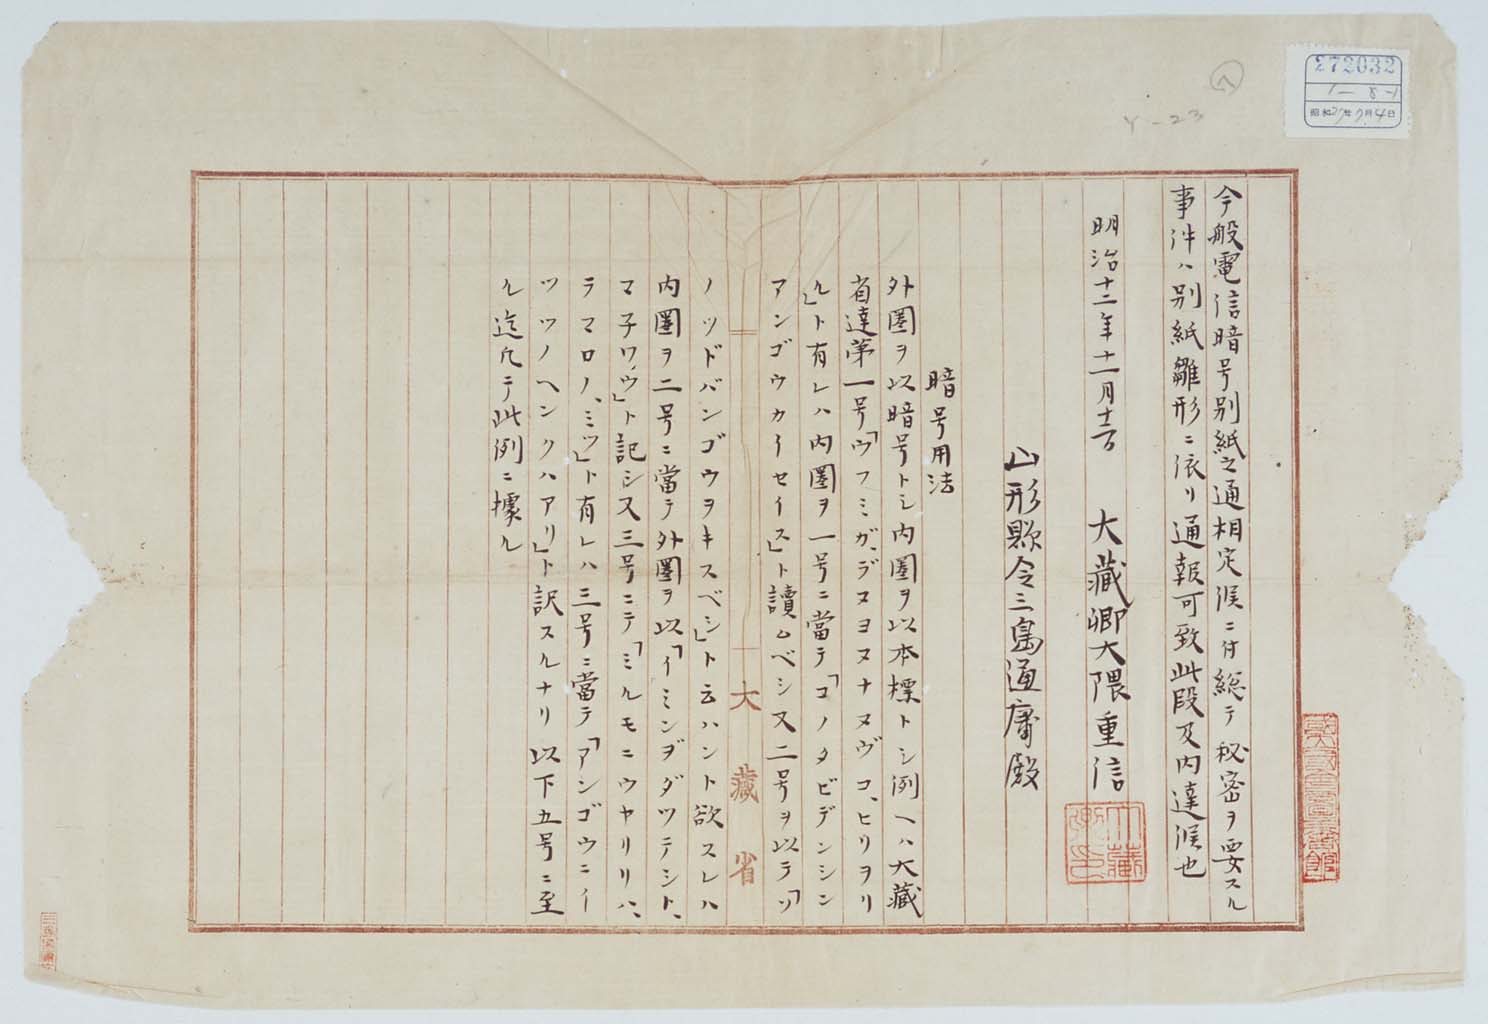 今般電信暗号別紙之通相定候ニ付総テ秘密ヲ要スル
事件ハ別紙雛形ニ依リ通報可致此段及内達候也
明治十二年十二月十二日 大藏卿大隈重信
大藏卿印
山形縣令三島通庸殿
暗号用法
外圏ヲ以暗号トシ内圏ヲ以本標トシ例ヘハ大藏
省達第一号「ウフミガ、デヌヨヌナヌヴコ、ヒリヲリ
ル」ト有レハ内圏ヲ一号ニ當テ「コノタビデンシン
アンゴウカイセイス」ト讀ムベシ又二号ヲ以テ「ソ
ノツドバンゴウヲキスベシ」ト云ハント欲スレハ
内圏ヲ二号ニ當テ外圏ヲ以「イミンヺダツテシト、
マ子ワ、ウ」ト記シ又三号ニテ「ミルモニウヤリリハ、
ラマロノ、ミツ」ト有レハ三号ニ當テ「アンゴウニイ
ツツノヘンクハアリ」ト訳スルナリ以下五号ニ至
ル迄凡テ此例ニ據ル
大藏省
272032
昭和27年7月4日
Y-23
国立国会図書館